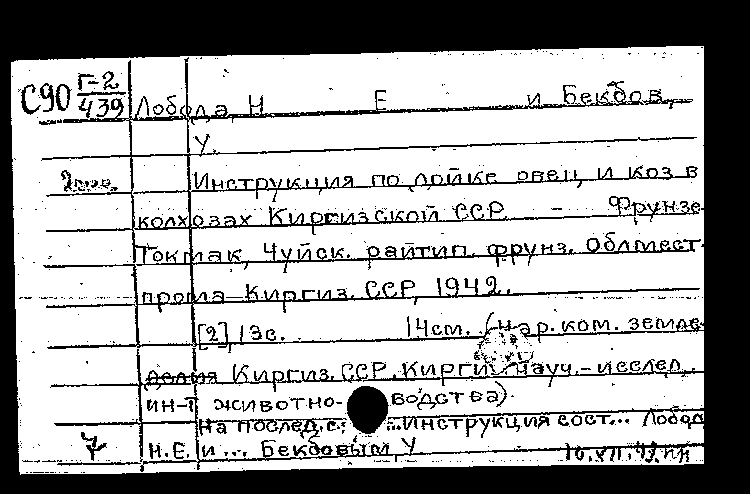 С90 Г-2
439 Лобода, Н Е и Бекбов,
У.
2 экз. Инструкция по дойке овец и коз в
колхозах Киргизской ССР. - Фрунзе-
Токмак, Чуйск. райтип. Фрунз. Облмест-
прома Киргиз. ССР, 1942.
[2], 13с. 14см. (Нар. ком. земле-
делия Киргиз. ССР. Киргиз. науч.-исслед.
ин-т животно- водства).
На послед. с.: ...Инструкция сост... Лобода
Н.Е. и ... Бекбовым У